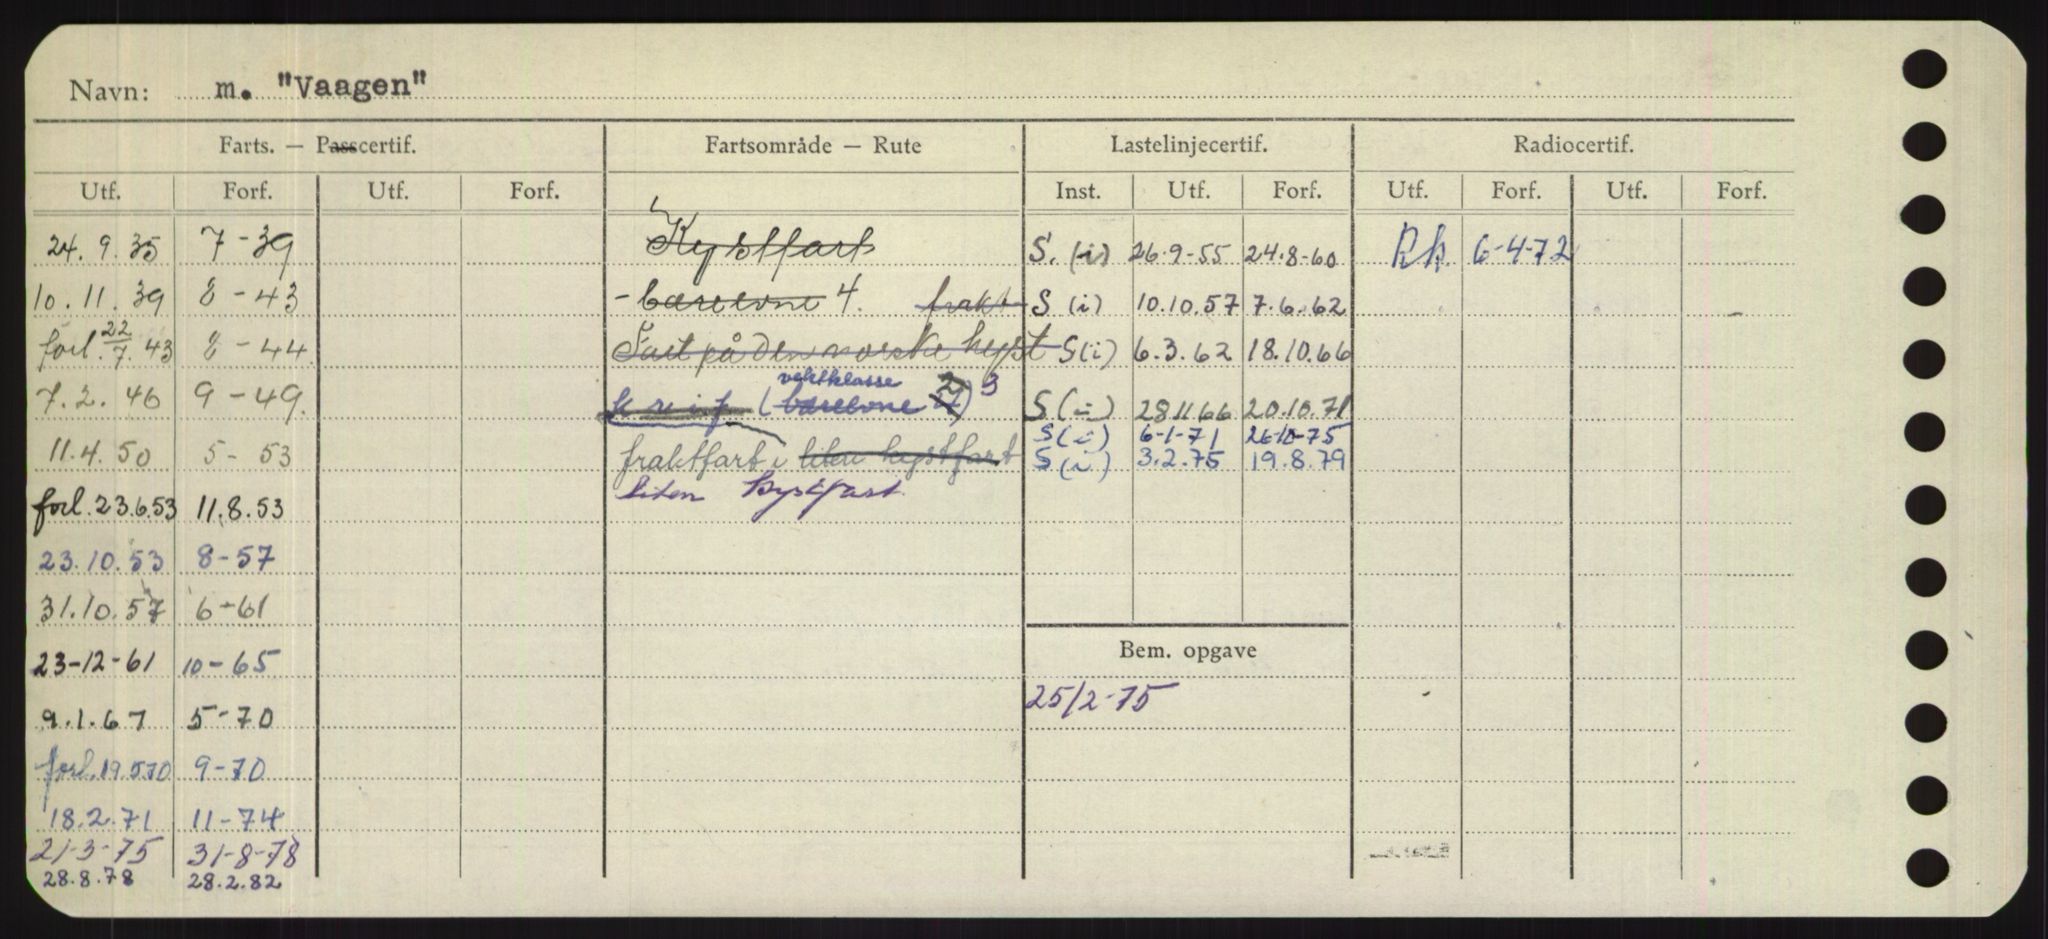 Navn: m. "Vaagen"
Farts. — Passcertif. Fartsområde — Rute Lastelinjecertif. Radiocertif.
Utf. Forf. Utf. Forf. Inst. Utf. Forf. Utf. Forf. Utf. Forf.
24. 9. 35 7-39 Kystfart S. (i) 26-9-55 24-8-60 Rk. 6-4-72
10. 11. 39 8-43 - bæreevne 4. frakt S (i) 10.10.57 7.6.62
forl. 22/7. 43 8-44. Fart på den norske kyst S(i) 6.3.62 18.10.66
vektklasse
7. 2. 46 9-49. (bæreevne 2) 3 S(i) 28 11 66 20.10.71
S(i) 6-1-71 26-10-75
11.4.50 5-53 fraktfart i liten kystfart S(i) 3.2.75 19.8.79
forl. 23.6.53 11.8.53 liten kystfart.
23.10.53 8-57
31.10.57 6-61
Bem. opgave
23-12-61 10-65
25/2-75
9.1.67 5-70
forl. 19.5.70 9-70
18.2.71 11-74
21-3-75 31-8-78
28.8.78 28.2.82